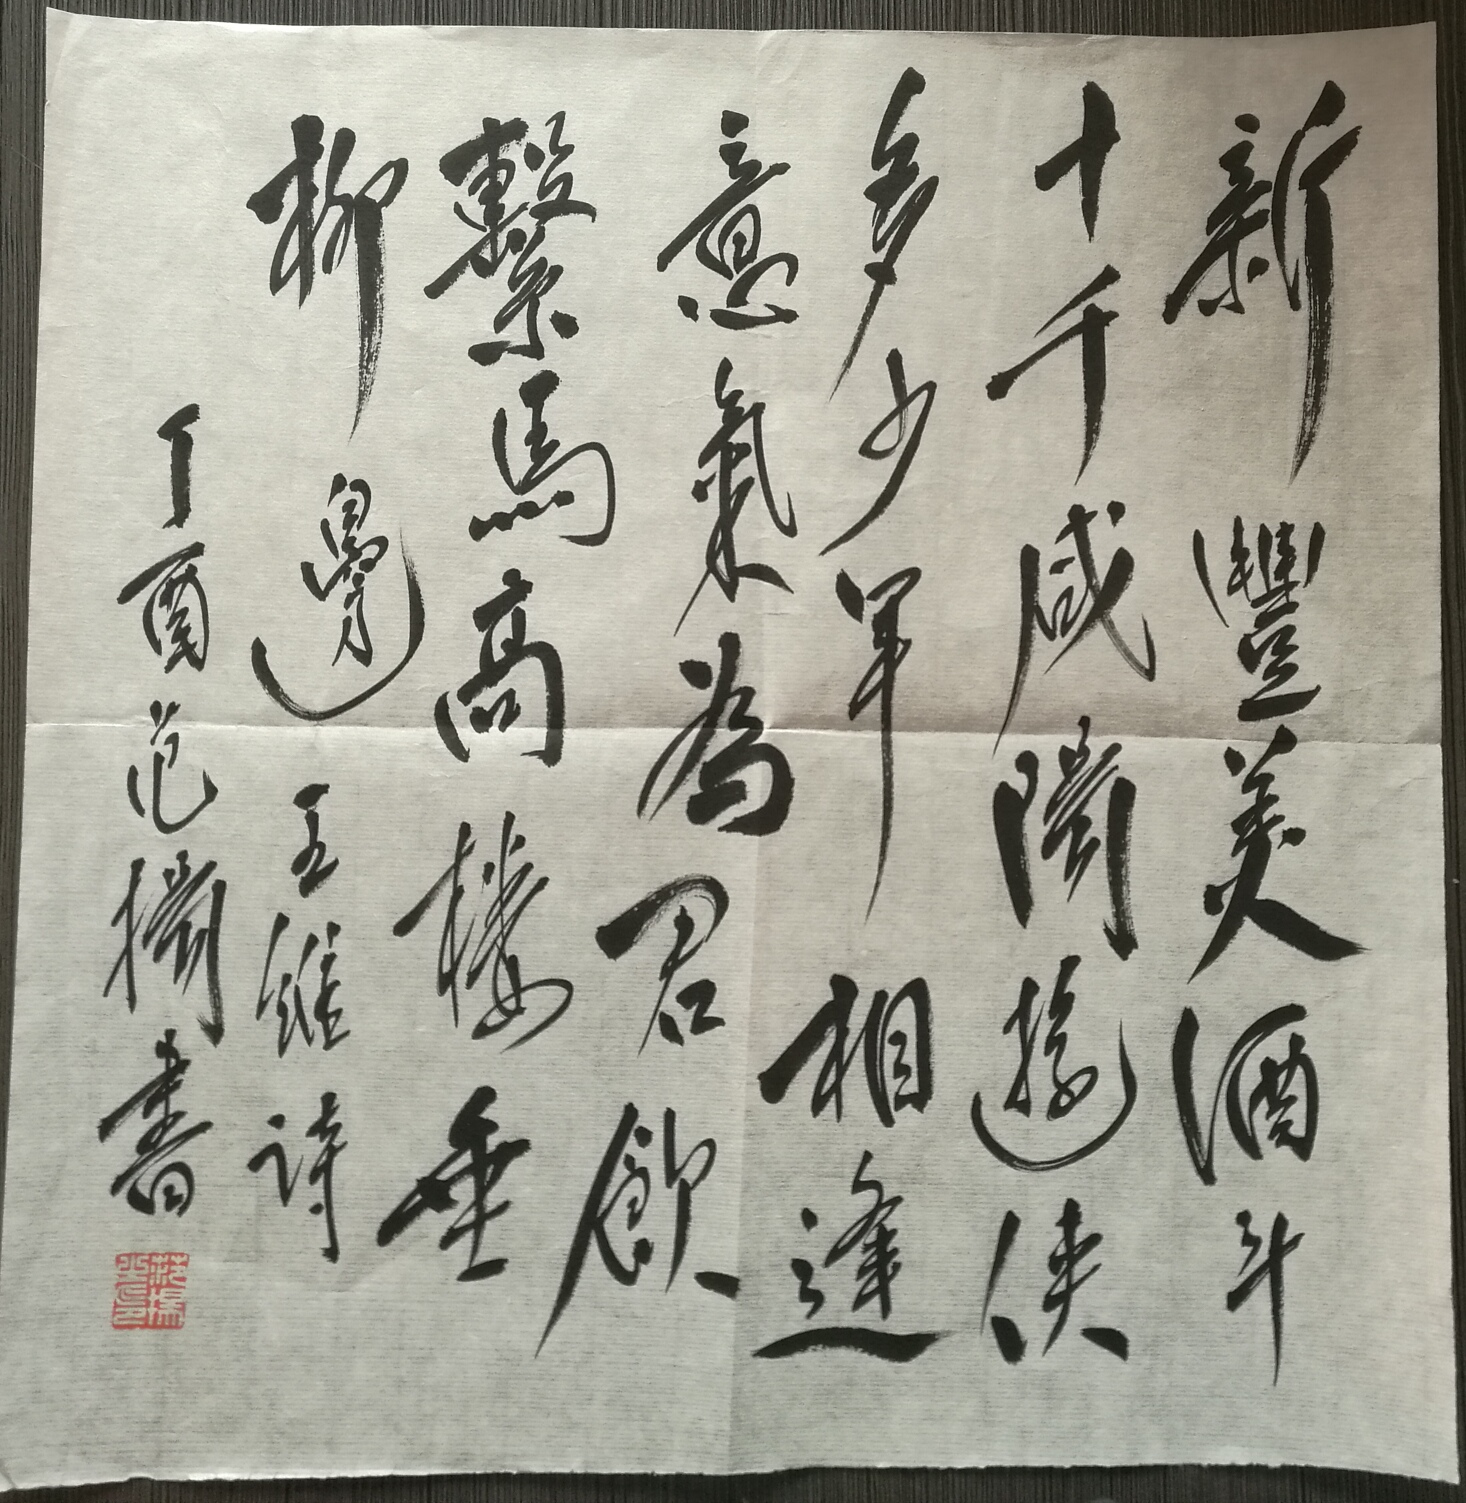 新豐美酒斗
十千咸陽遊俠
多少年相逢
意氣為君飲
繫馬高樓垂
柳邊 王維詩
丁酉范揚書
范揚之印